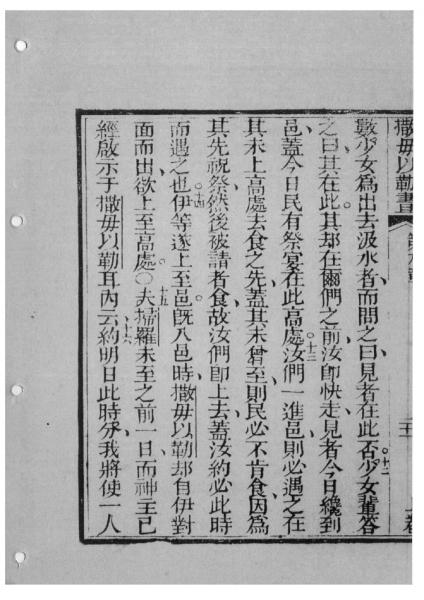 撒毋以勒書
數少女爲出去汲水者而問之曰見者在此否十二少女輩答
之曰其在此其却在爾們之前汝即快走見者今日纔到
邑蓋今日民有祭宴在此高處十三汝們一進邑則必遇之在
其未上高處去食之先蓋其未曾至則民必不肯食因爲
其先祝祭然後被請者食故汝們即上去蓋汝約必此時
而遇之也十四伊等遂上至邑旣入邑時撒毋以勒却自伊對
面而出欲上至高處○十五夫掃羅未至之前一日而神主已
經啟示于撒毋以勒耳內云十六約明日此時分我將使一人